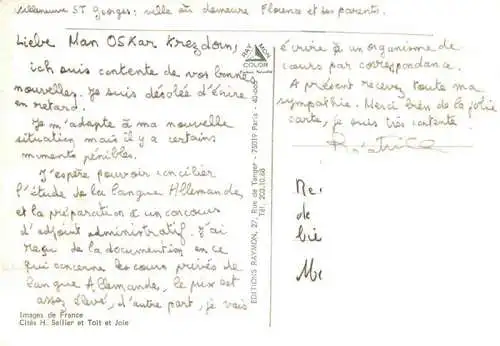 Villeneuve ST Georges: ville où demeure Florence et ses parents.
Liebe Man OSKar Krezdorn,
ich suis contente de vos bonnes
nouvelles. Je suis désolée d'écrire
en retard.
Je m'adapte à ma nouvelle
situation mais il y a certains
moments pénibles.
J'espère pouvoir concilier
l'étude de la langue Allemande,
et la préparation à un concours
d'adjoint administratif. J'ai
reçu de la documentation en ce
qui concerne les cours privés de
langue Allemande, le prix est
assez élevé, d'autre part, je vais
Images de France
Cités H. Sellier et Toit et Joie
RAY MON
COLOR
EDITIONS RAYMON, 27, Rue de Tanger - 75019 Paris -
Tél. 203.10.68
écrire à un organisme de
cours par correspondance.
A présent recevez toute ma
sympathie. Merci bien de la jolie
carte, je suis très contente.
Me
de